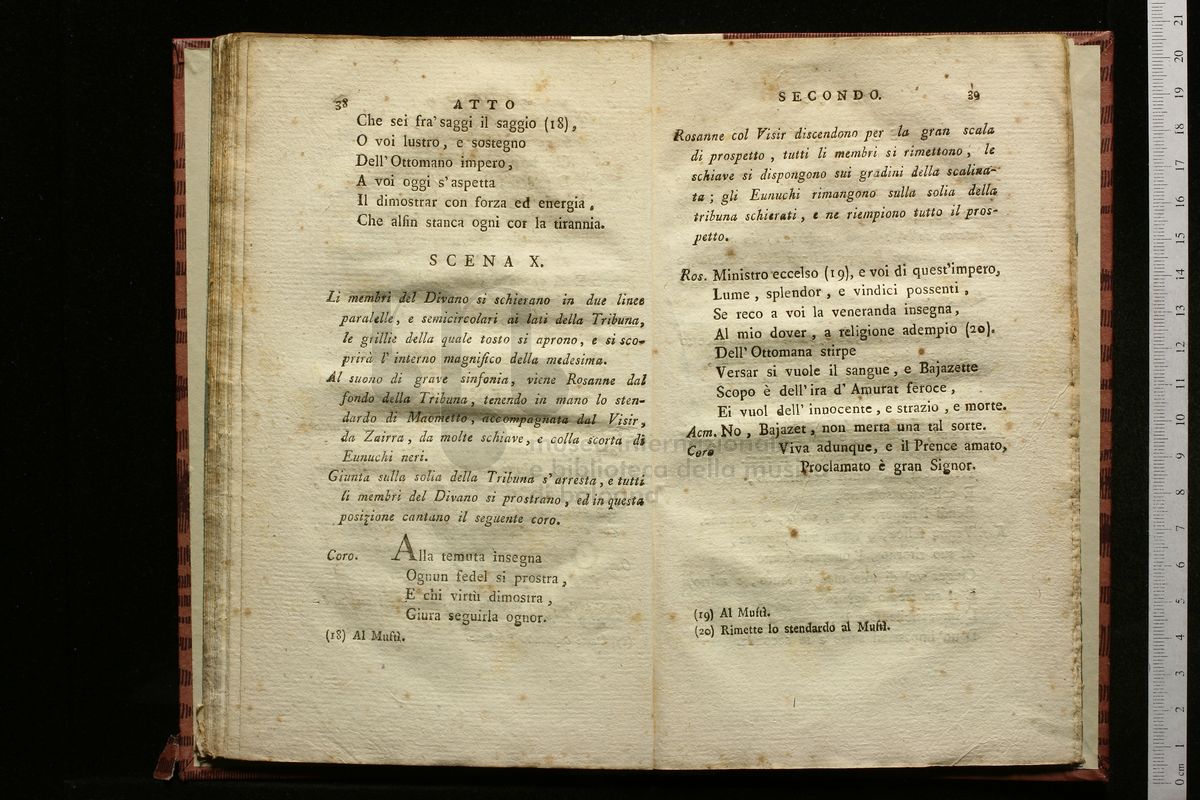 38 ATTO
Che sei fra' saggi il saggio (18),
O voi lustro, e sostegno
Dell'Ottomano impero,
A voi oggi s'aspetta
Il dimostrar con forza ed energia,
Che alfin stanca ogni cor la tirannia.
SCENA X.
Li membri del Divano si schierano in due linee
paralelle, e semicircolari ai lati della Tribuna,
le grillie della quale tosto si aprono, e si sco-
prirà l'interno magnifico della medesima.
Al suono di grave sinfonia, viene Rosanne dal
fondo della Tribuna, tenendo in mano lo sten-
dardo di Maometto, accompagnata dal Visir,
da Zairra, da molte schiave, e colla scorta di
Eunuchi neri.
Giunta sulla solia della Tribuna s'arresta, e tutti
li membri del Divano si prostrano, ed in questa
posizione cantano il seguente coro.
Coro. Alla temuta insegna
Ognun fedel si prostra,
E chi virtù dimostra,
Giura seguirla ognor.
(18) Al Muftì.
SECONDO. 39
Rosanne col Visir discendono per la gran scala
di prospetto, tutti li membri si rimettono, le
schiave si dispongono sui gradini della scalina-
ta; gli Eunuchi rimangono sulla solia della
tribuna schierati, e ne riempiono tutto il pros-
petto.
Ros. Ministro eccelso (19), e voi di quest'impero,
Lume, splendor, e vindici possenti,
Se reco a voi la veneranda insegna,
Al mio dover, a religione adempio (20).
Dell'Ottomana stirpe
Versar si vuole il sangue, e Bajazette
Scopo è dell'ira d'Amurat feroce,
Ei vuol dell'innocente, e strazio, e morte.
Acm. No, Bajazet, non merta una tal sorte.
Coro Viva adunque, e il Prence amato,
Proclamato è gran Signor.
(19) Al Muftì.
(20) Rimette lo stendardo al Muftì.
museo internazionale
e biblioteca della musica
21
20
19
18
17
16
15
14
13
12
11
10
9
8
7
6
5
4
3
2
1
0 cm